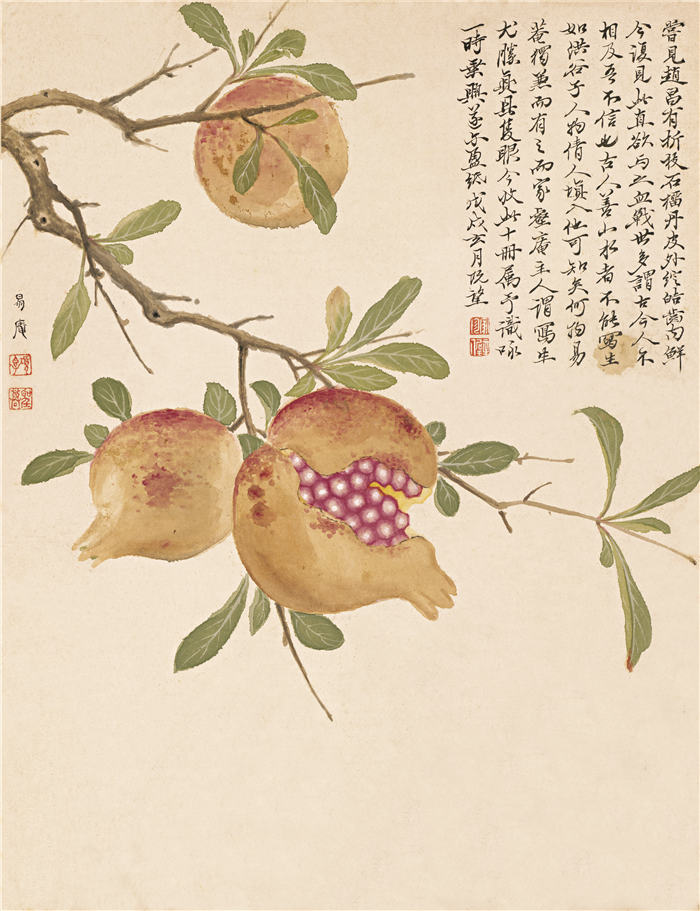 嘗見趙昌有折枝石榴丹皮外綻皓齒內鮮
今復見此直欲与之血戰世多謂古今人不
相及吾不信也古人善山水者不能寫生
如洪谷子人物倩人填入他可知矣何項易
菴獨兼而有之而家壑庵主人謂寫生
尤勝具隻眼今收此十冊属予識咏
一時乗興遂書盈紙戊戌玄月
易庵